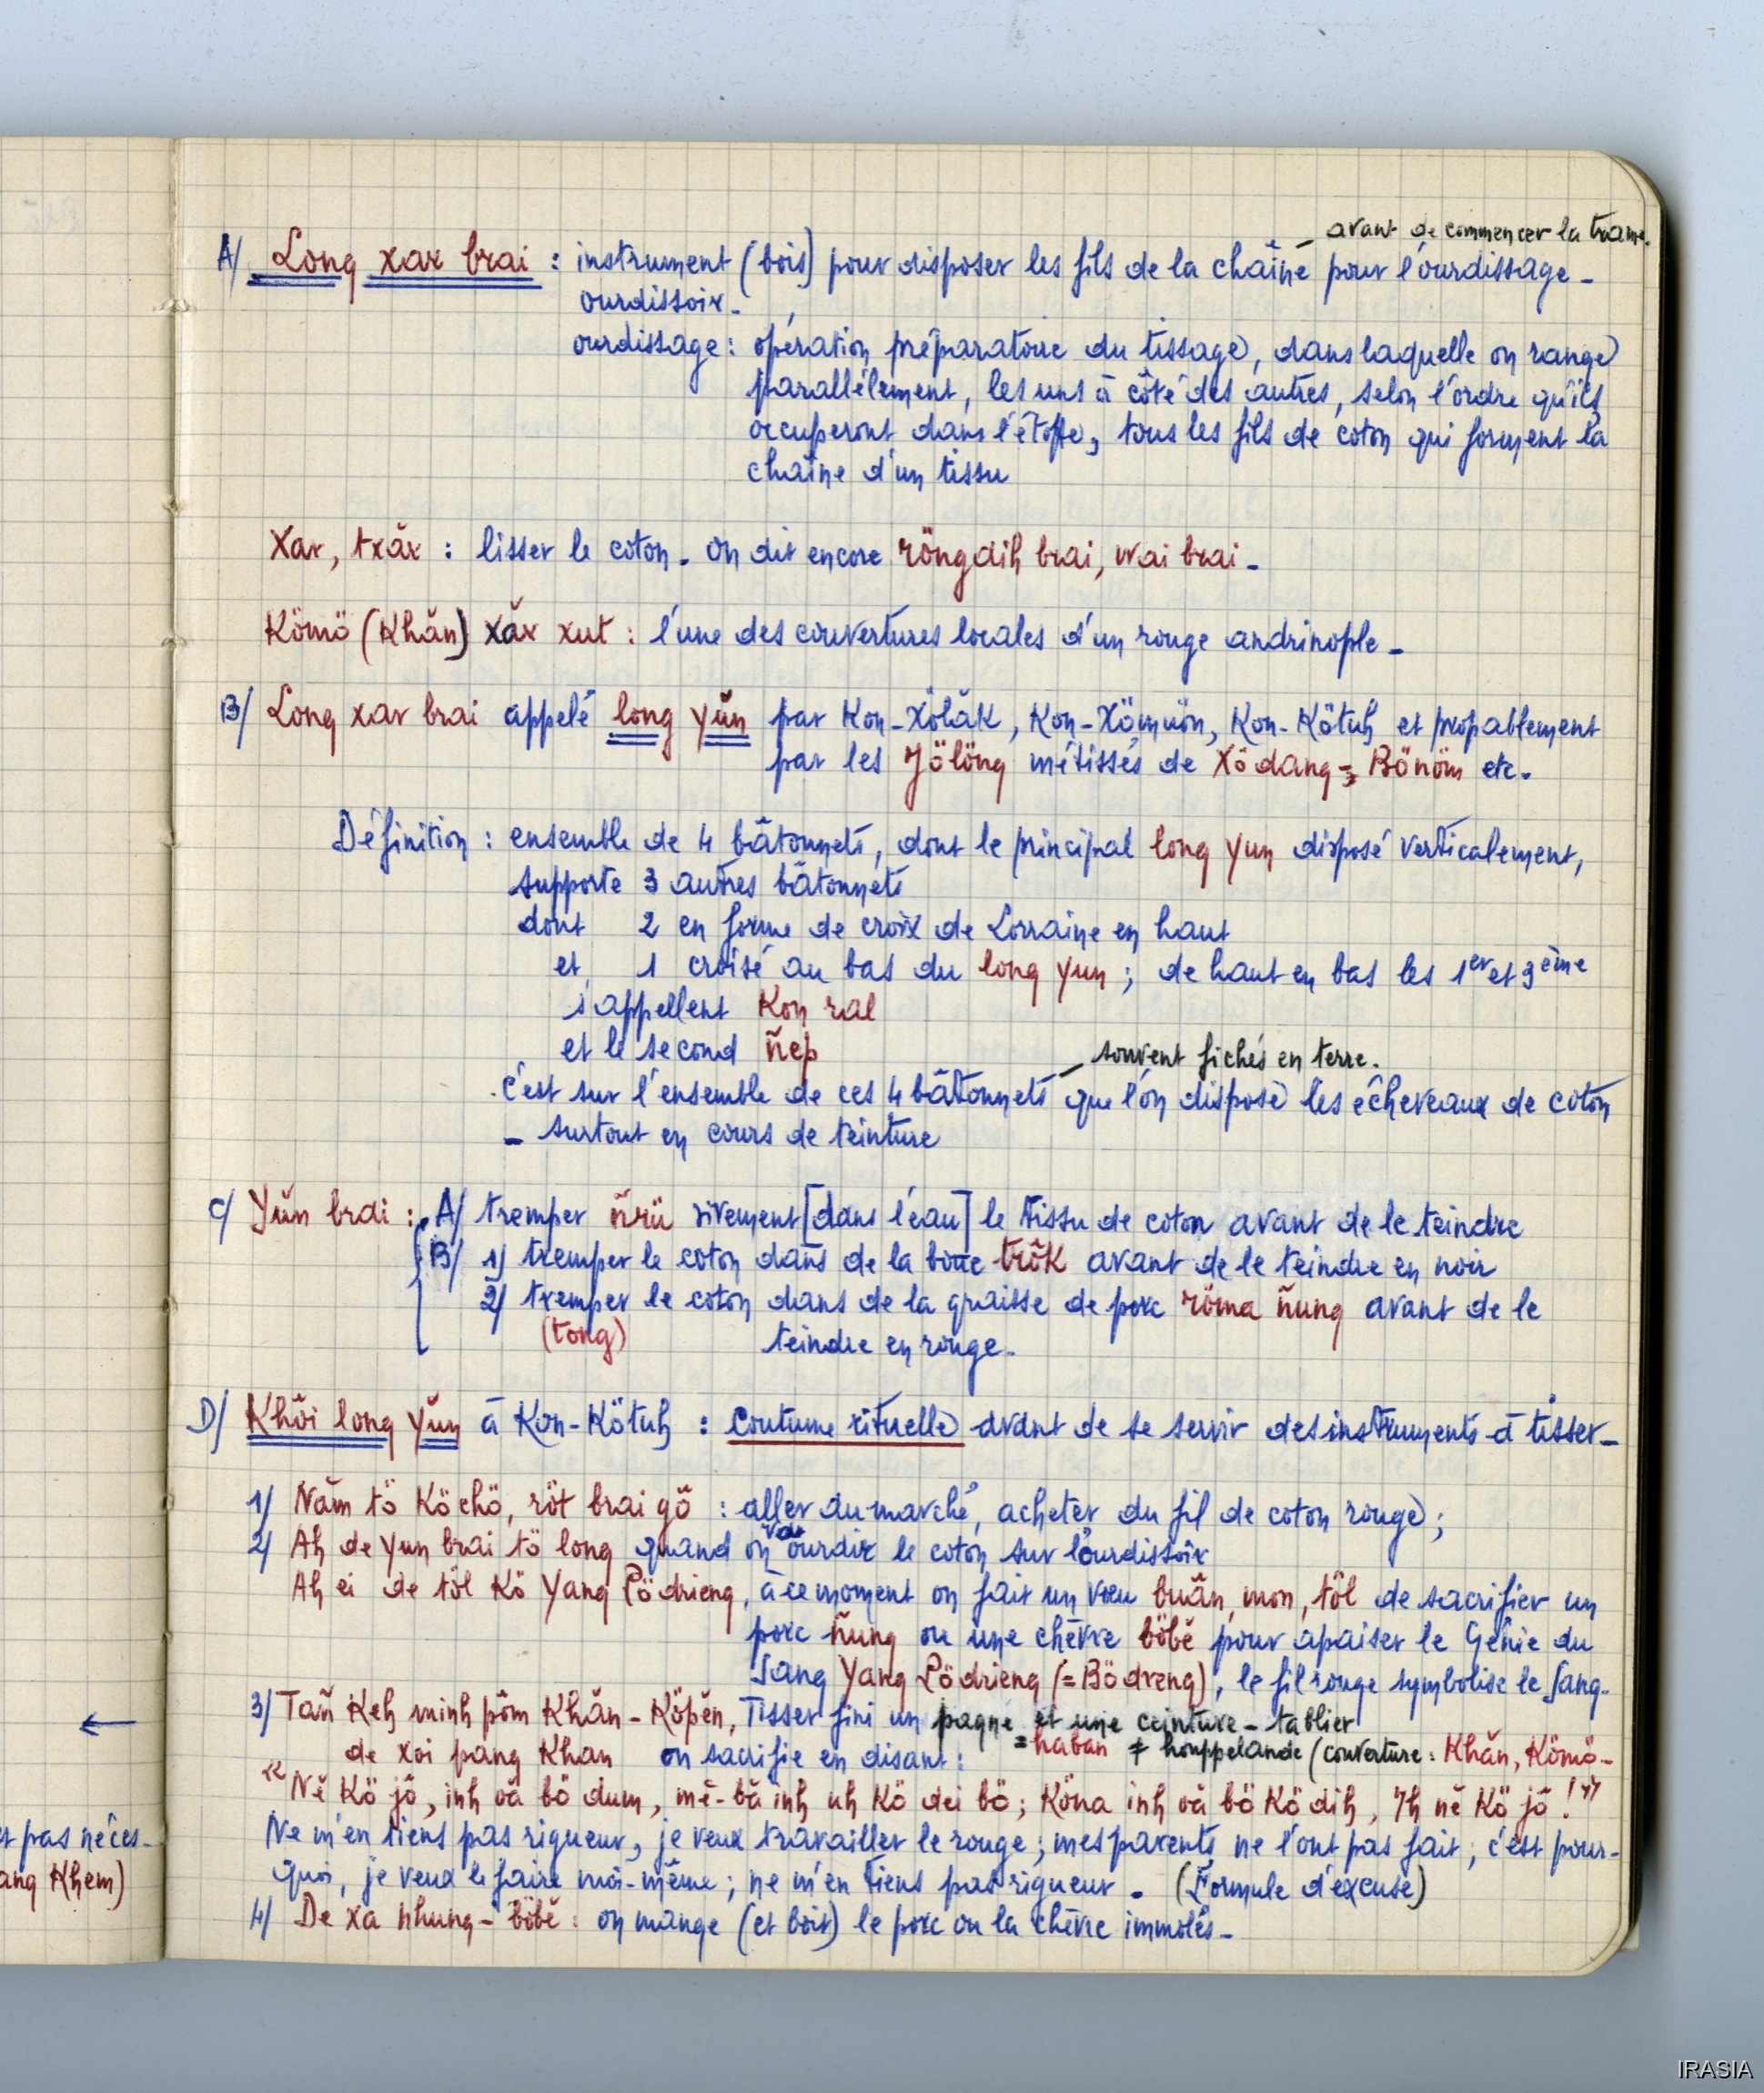 avant de commencer la trame.
A/ Long xar brai : instrument (bois) pour disposer les fils de la chaîne pour l'ourdissage -
ourdissoir -
ourdissage : opération préparatoire du tissage, dans laquelle on range
parallèlement, les uns à côté des autres, selon l'ordre qu'ils
occuperont dans l'étoffe, tous les fils de coton qui forment la
chaîne d'un tissu
Xar, txăr : lisser le coton - on dit encore röngdih brai, wai brai -
Kömö (Khăn) xăr xut : l'une des couvertures locales d'un rouge andrinople -
B/ Long xar brai appelé long yŭn par Kon-Xölăk, Kon-Xömuôn, Kon-Kötuh et propablement
par les Jölöng métissés de Xödang - Bönöm etc.
Définition : ensemble de 4 bâtonnets, dont le principal long yun disposé verticalement,
supporte 3 autres bâtonnets
dont 2 en forme de croix de Lorraine en haut
et 1 croisé au bas du long yun ; de haut en bas les 1er et 3ème
s'appellent Kon ral
et le second ñep
souvent fichés en terre.
c'est sur l'ensemble de ces 4 bâtonnets que l'on dispose les écheveaux de coton
- surtout en cours de teinture
C/ Yŭn brai : A/ tremper ñrŭ vivement [dans l'eau] le tissu de coton avant de le teindre
B/ 1) tremper le coton dans de la boue trôk avant de le teindre en noir
2) tremper le coton dans de la graisse de porc röma ñung avant de le
(tong) teindre en rouge -
D/ Khôi long yŭn à Kon-Kötuh : coutume rituelle avant de se servir des instruments à tisser -
1/ Năm tö Köchö, röt brai gô : aller au marché, acheter du fil de coton rouge ;
2/ Ah de yun brai tö long quand on va ourdir le coton sur l'ourdissoir
Ah ei de tôl Kö Yang Pödrieng, à ce moment on fait un vœu buăn, mon, tôl de sacrifier un
porc ñung ou une chèvre böbĕ pour apaiser le Génie du
Sang Yang Pödrieng (= Bödreng), le fil rouge symbolise le sang.
3/ Tañ Keh minh pôm Khăn - Köpĕn, Tisser fini un pagne et une ceinture - tablier
= haban ≠ houppelande (couverture : Khăn, Kömö -
de xoi pang Khan on sacrifie en disant :
←
"Nĕ Kö jô, inh oă bö dum, mĕ-bă inh uh Kö dei bö ; Köna inh oă bö Ködih, Ih nĕ Kö jô !"
Ne m'en tiens pas rigueur, je veux travailler le rouge ; mes parents ne l'ont pas fait ; c'est pour-
quoi, je veux le faire moi-même ; ne m'en tiens pas rigueur - (Formule d'excuse)
4/ De xa nhung - böbĕ : on mange (et boit) le porc ou la chèvre immolés -
et pas néces-
ang Khem)
IRASIA